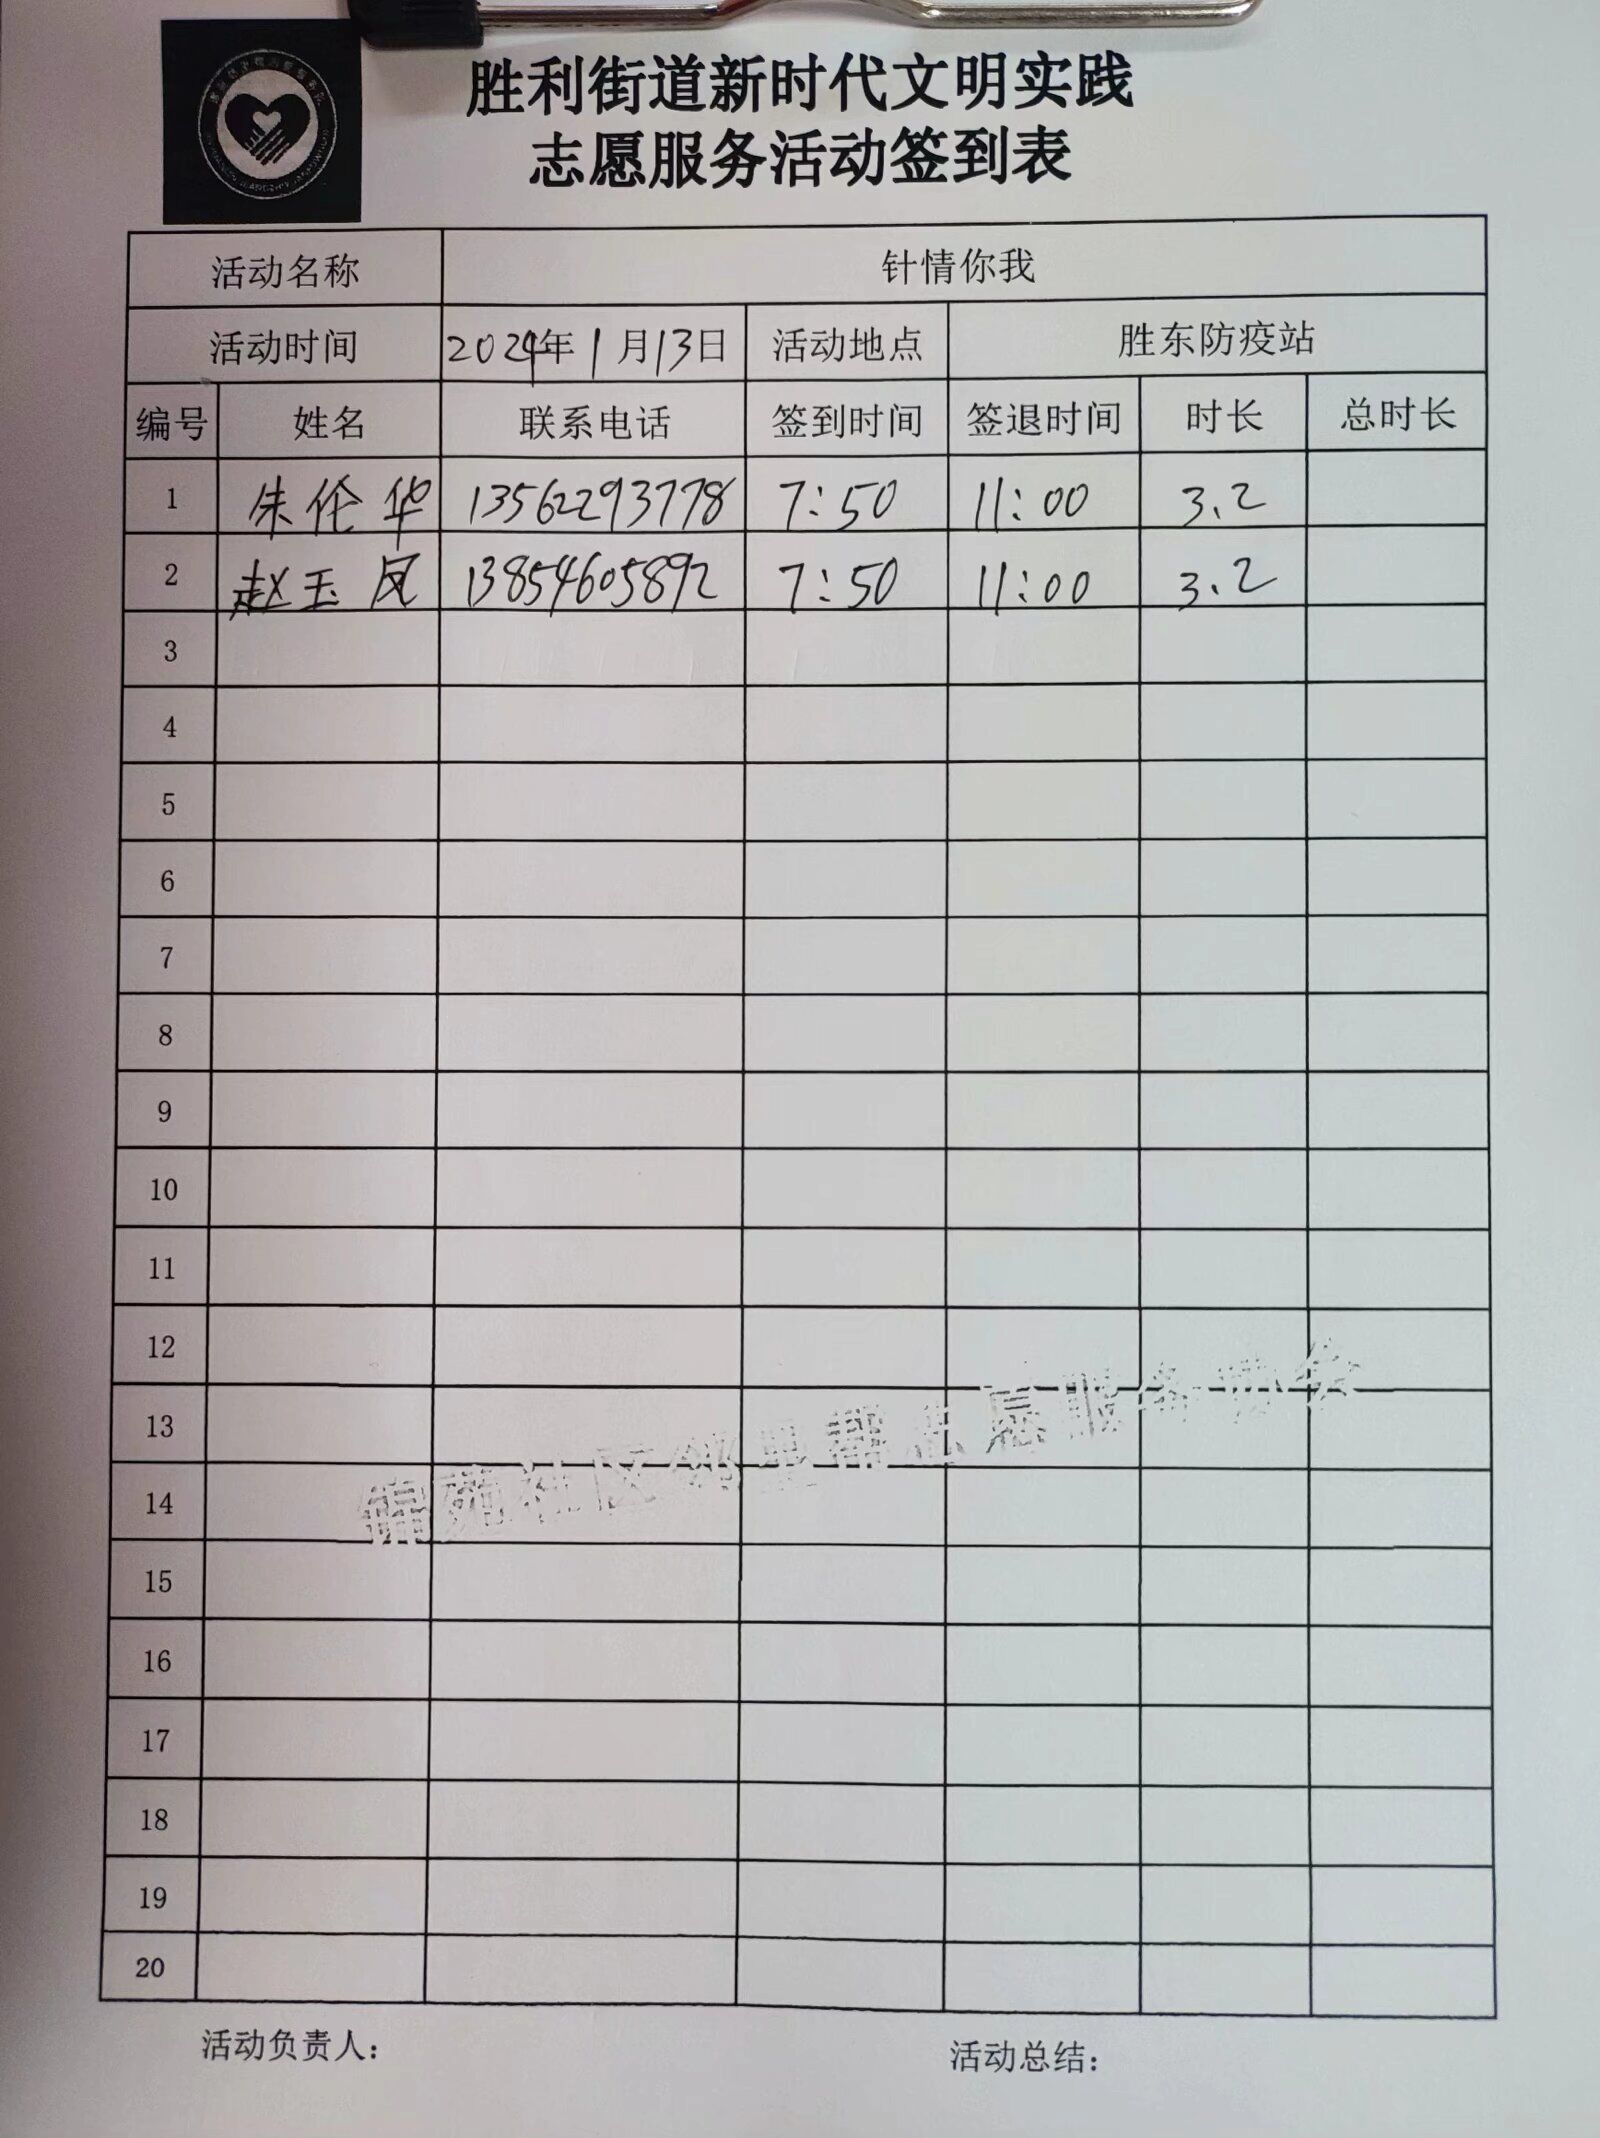 胜利街道新时代文明实践
志愿服务活动签到表
活动名称 针情你我
活动时间 2024年1月13日 活动地点 胜东防疫站
编号 姓名 联系电话 签到时间 签退时间 时长 总时长
1 朱伦华 13562293778 7:50 11:00 3.2
2 赵玉凤 13854605892 7:50 11:00 3.2
3
4
5
6
7
8
9
10
11
12
13
14
15
16
17
18
19
20
锦苑社区邻里帮志愿服务协会
活动负责人: 活动总结: